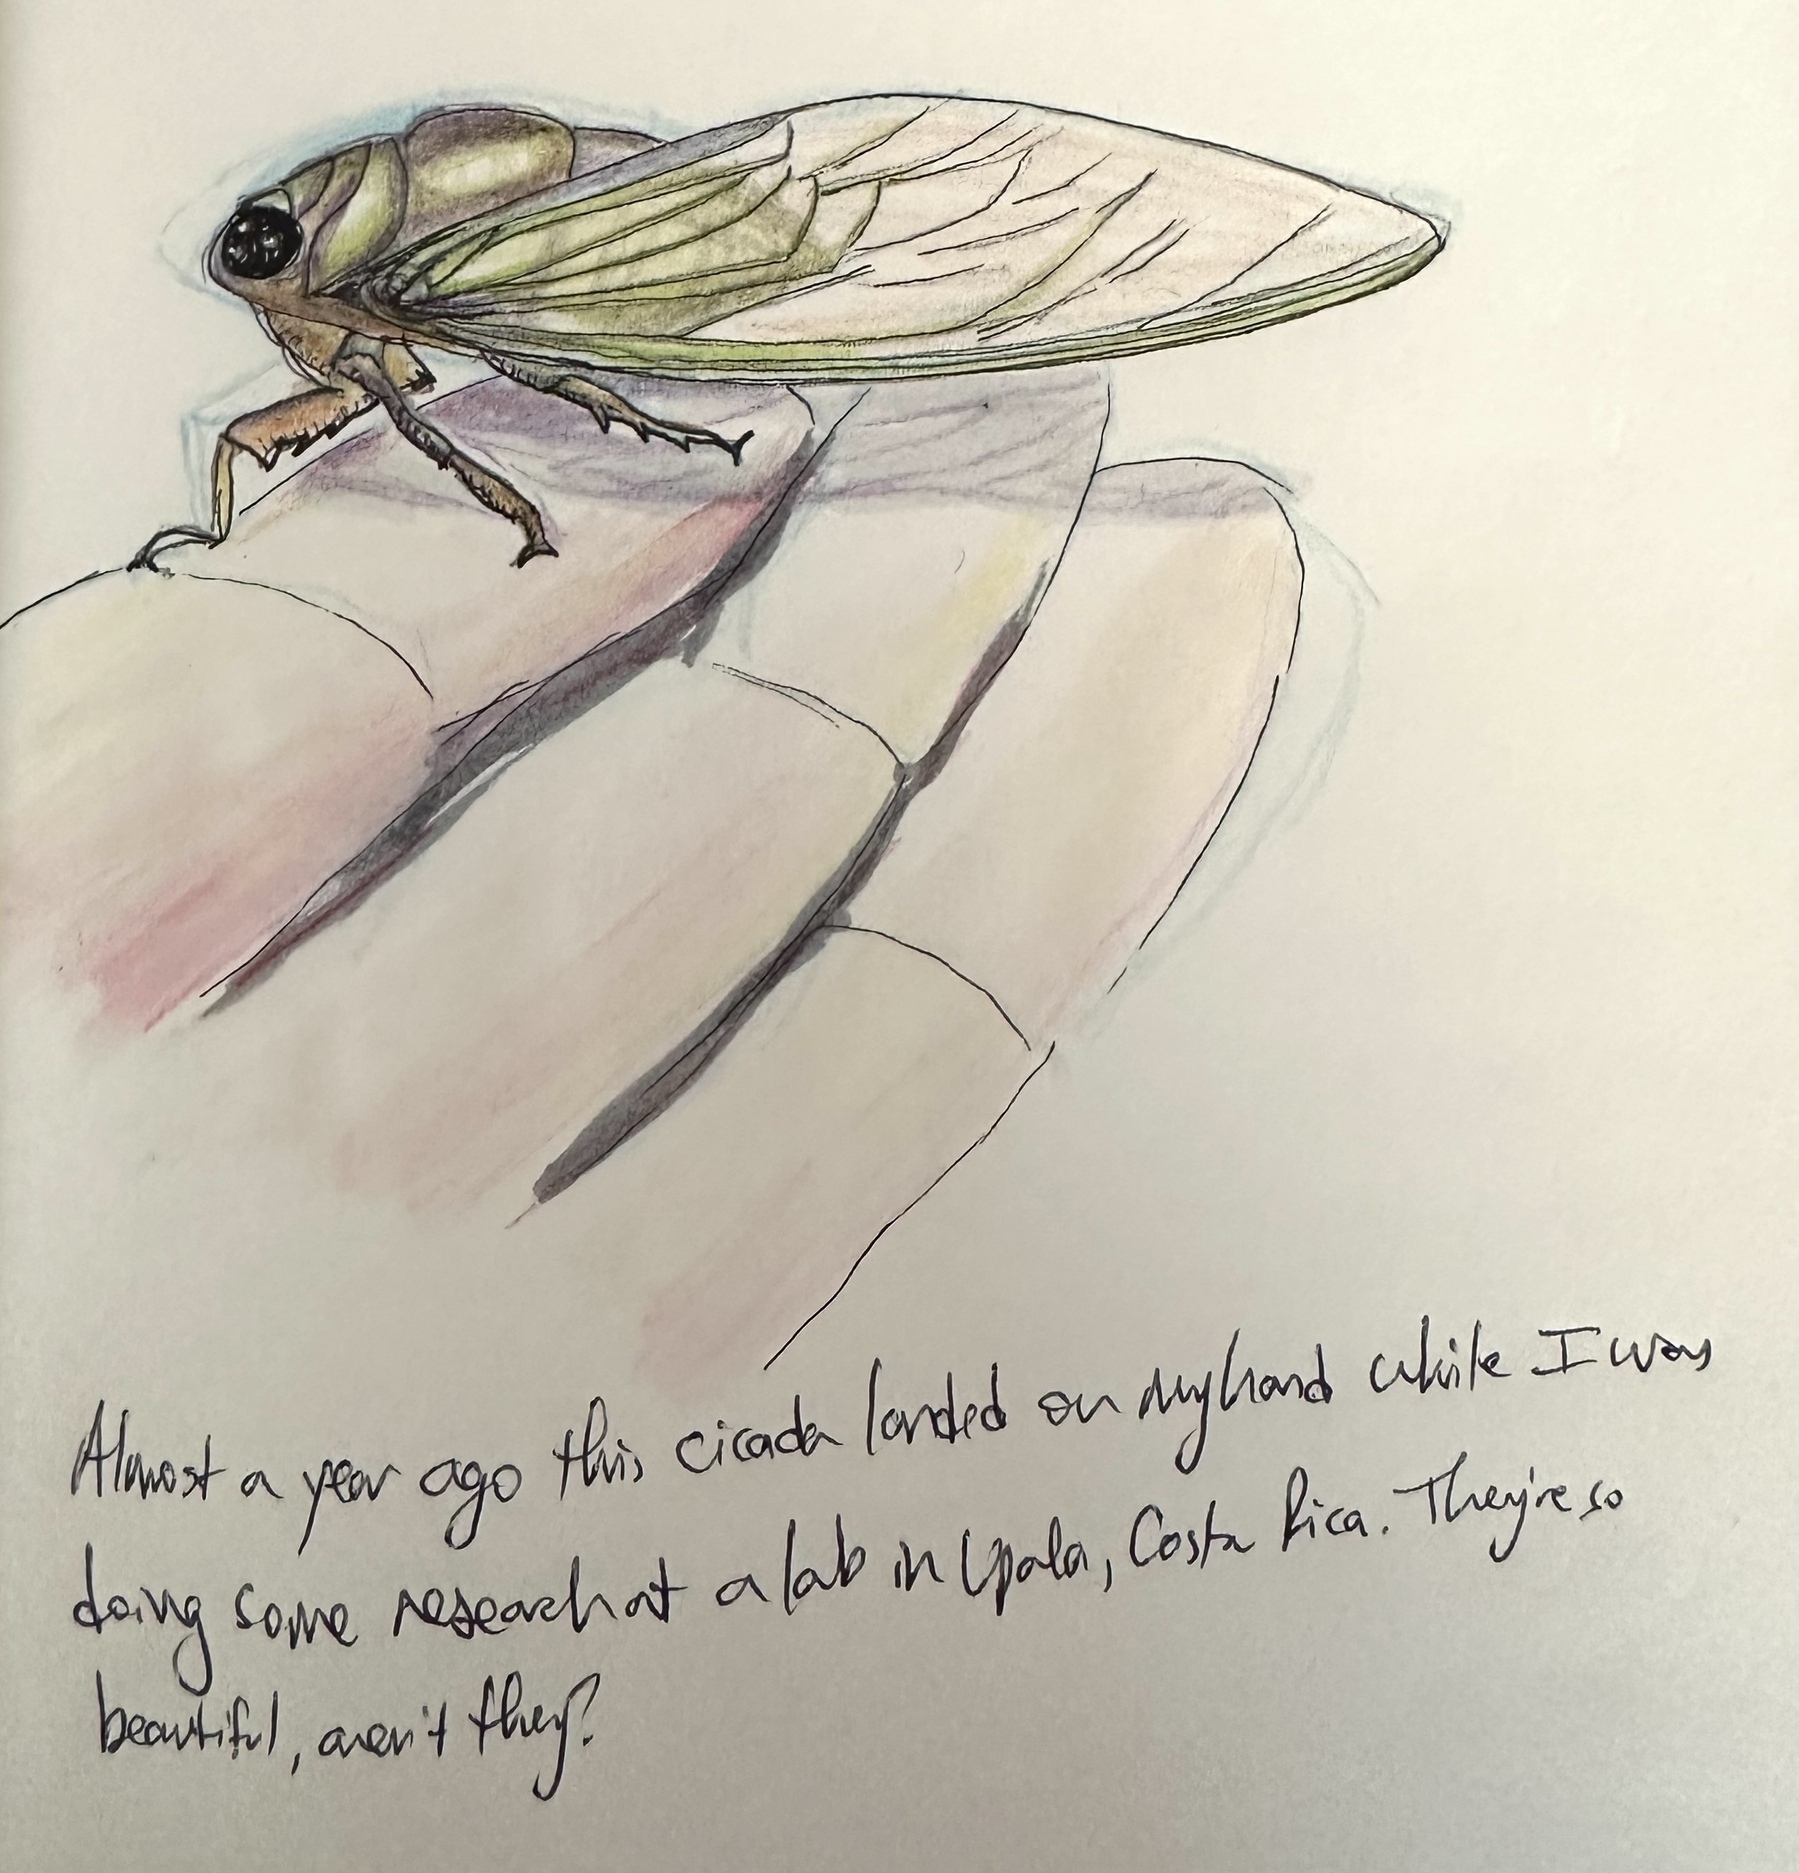 Almost a year ago this cicada landed on my hand while I was
doing some research at a lab in Upala, Costa Rica. They're so
beautiful, aren't they?